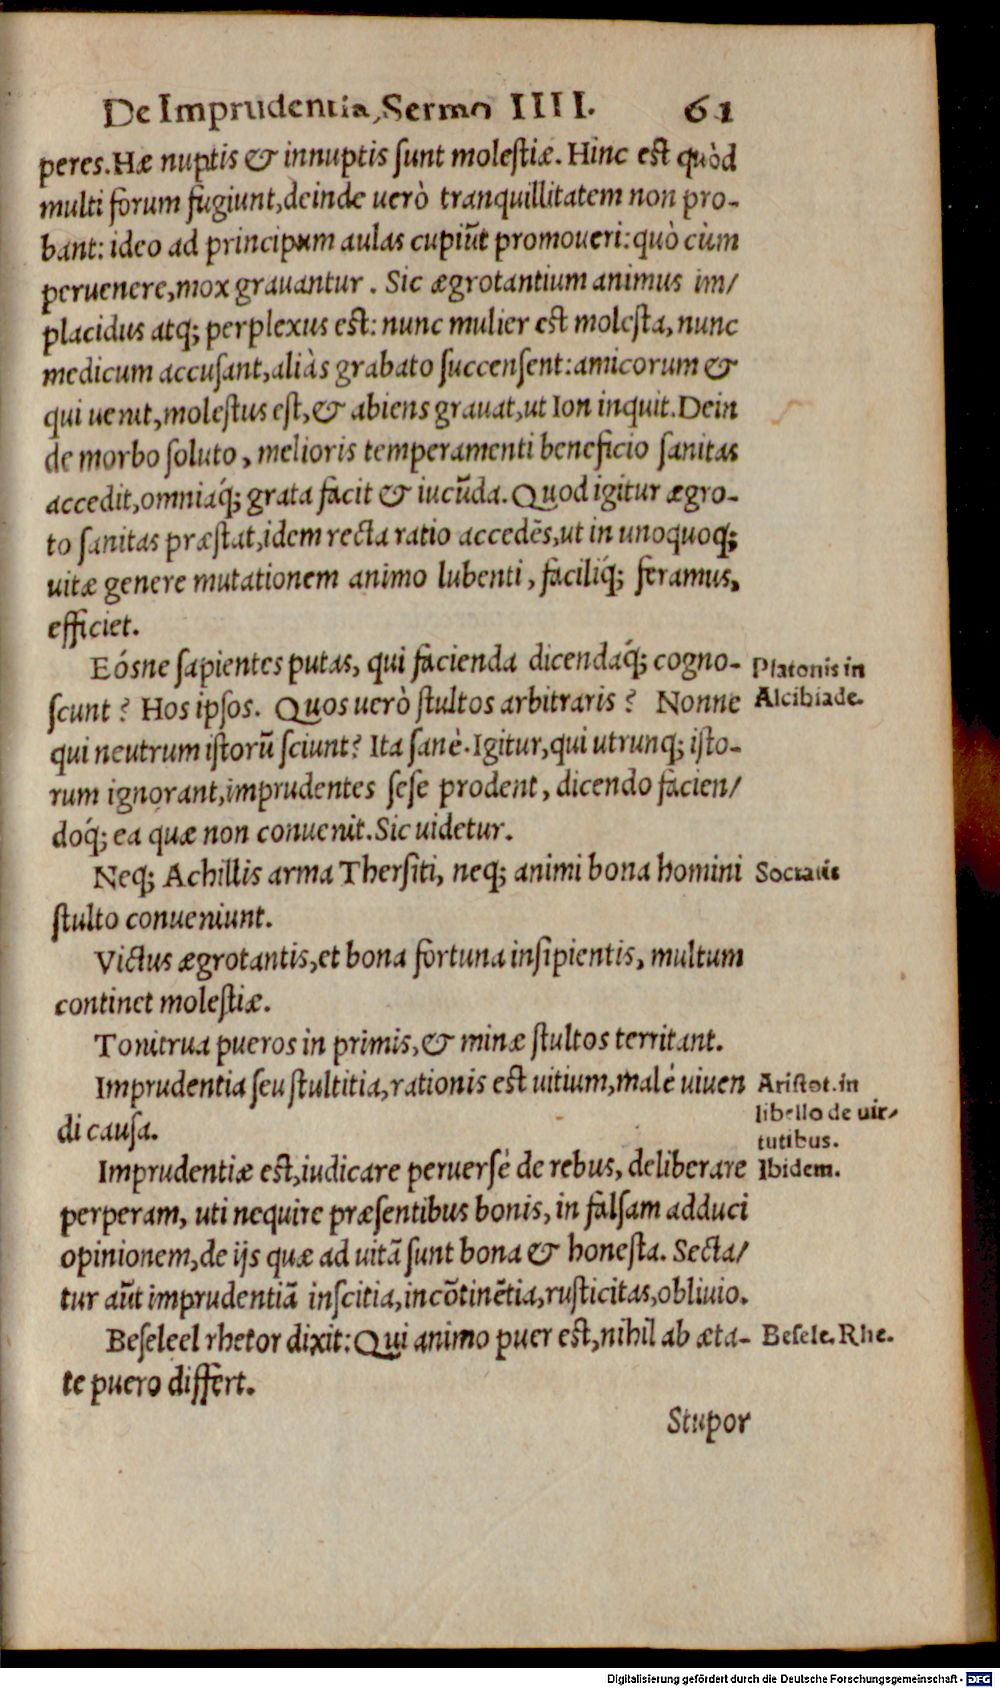 De Imprudentia, Sermo IIII. 61
peres. Hæ nuptis & innuptis ſunt moleſtiæ. Hinc est quòd
multi forum fugiunt, deinde uerò tranquillitatem non pro-
bant: ideo ad principum aulas cupiũt promoueri: quò cùm
peruenere, mox grauantur. Sic ægrotantium animus im/
placidus atq; perplexus est: nunc mulier est moleſta, nunc
medicum accuſant, aliàs grabato ſuccenſent: amicorum &
qui uenit, moleſtus eſt, & abiens grauat, ut Ion inquit. Dein
de morbo ſoluto, melioris temperamenti beneficio ſanitas
accedit, omniaq́; grata facit & iucũda. Quod igitur ægro-
to ſanitas præſtat, idem recta ratio accedẽs, ut in unoquoq;
uitæ genere mutationem animo lubenti, faciliq́; feramus,
efficiet.
Eósne ſapientes putas, qui facienda dicendaq́; cogno- Platonis in
ſcunt? Hos ipſos. Quos uerò ſtultos arbitraris? Nonne Alcibiade.
qui neutrum iſtorũ ſciunt? Ita ſanè. Igitur, qui utrunq; iſto-
rum ignorant, imprudentes ſeſe prodent, dicendo facien/
doq́; ea quæ non conuenit. Sic uidetur.
Neq; Achillis arma Therſiti, neq; animi bona homini Socratis
ſtulto conueniunt.
Victus ægrotantis, et bona fortuna inſipientis, multum
continet moleſtiæ.
Tonitrua pueros in primis, & minæ ſtultos territant.
Imprudentia ſeu ſtultitia, rationis est uitium, malè uiuen Ariſtot. in
di cauſa. libello de uir/
tutibus.
Imprudentiæ est, iudicare peruerſè de rebus, deliberare Ibidem.
perperam, uti nequire præſentibus bonis, in falſam adduci
opinionem, de ijs quæ ad uitã ſunt bona & honeſta. Secta/
tur aũt imprudentiã inſcitia, incõtinẽtia, ruſticitas, obliuio.
Beſeleel rhetor dixit: Qui animo puer est, nihil ab æta- Beſele. Rhe.
te puero differt.
Stupor
Digitalisierung gefördert durch die Deutsche Forschungsgemeinschaft - DFG